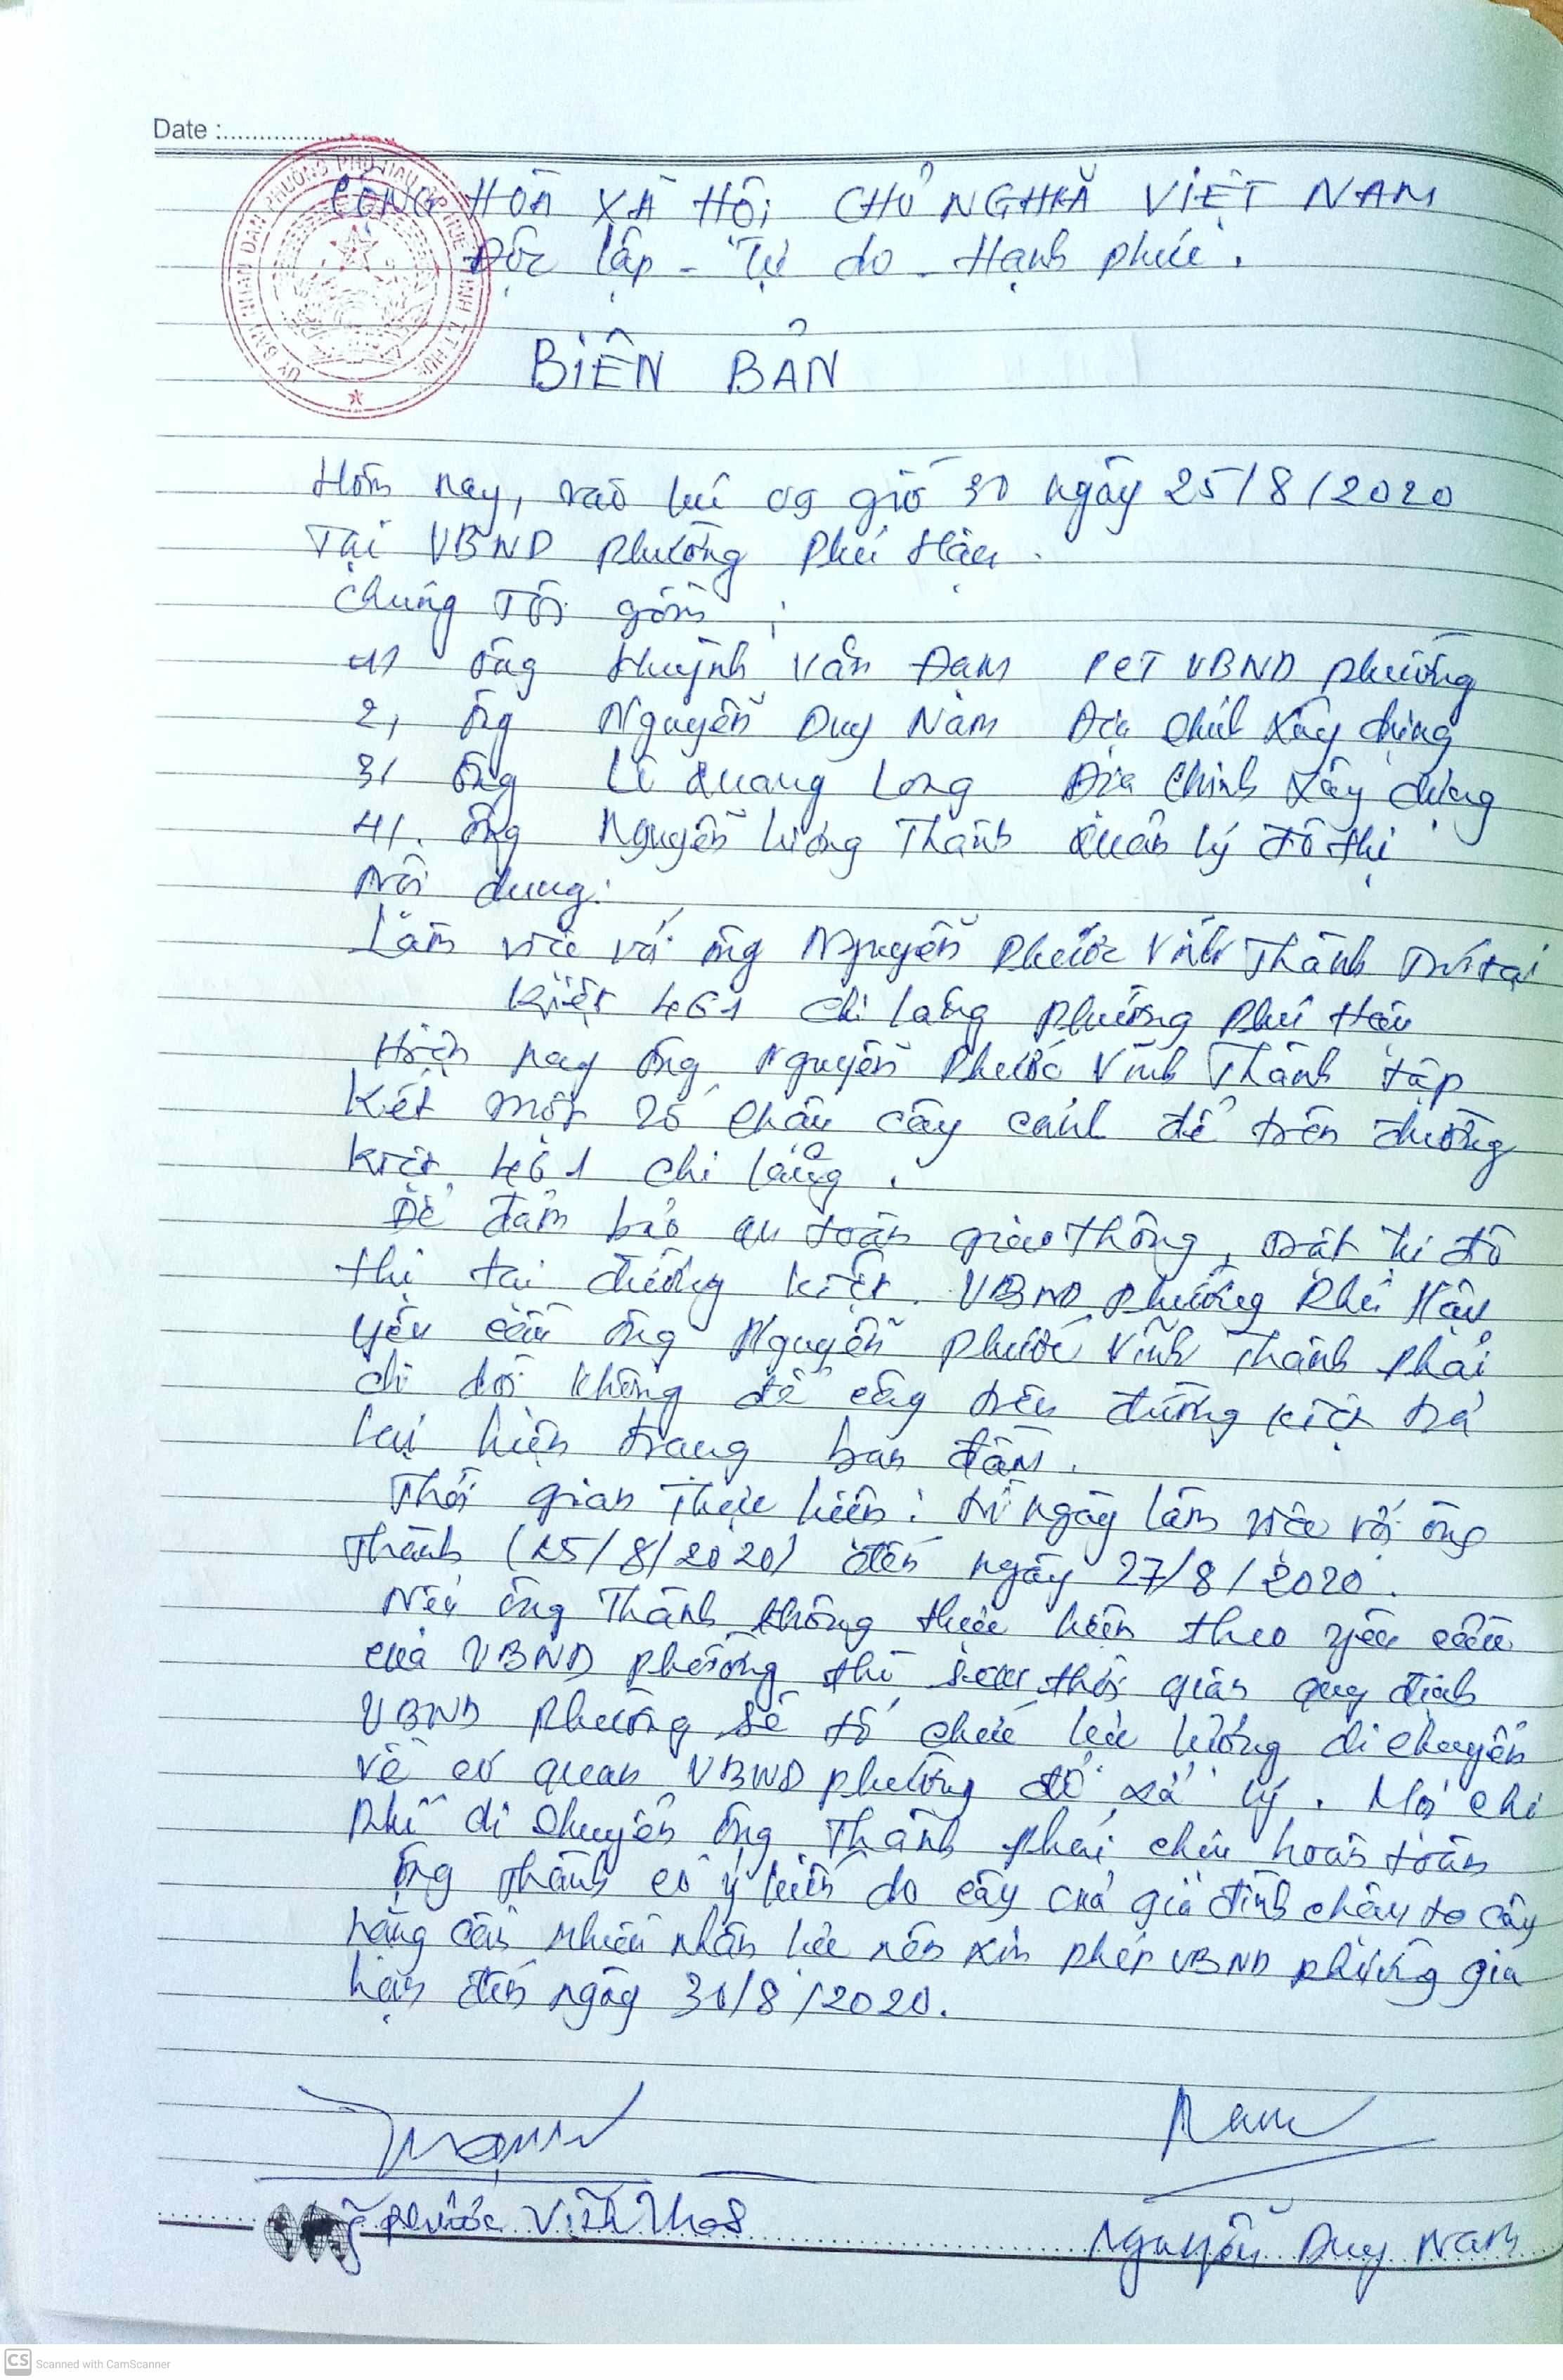 Date :
CỘNG HÒA XÃ HỘI CHỦ NGHĨA VIỆT NAM
Độc lập - Tự do - Hạnh phúc.
BIÊN BẢN
Hôm nay, vào lúc 09 giờ 30 ngày 25/8/2020
Tại UBND phường Phú Hậu.
Chúng tôi gồm:
1/ Ông Huỳnh Văn Đạm PCT UBND phường
2/ Ông Nguyễn Duy Nam Địa chính xây dựng
3/ Ông Lê Quang Long Địa chính xây dựng
4/. Ông Nguyễn Lương Thành Quản lý đô thị
Nội dung:
Làm việc với ông Nguyễn Phước Vĩnh Thành trú tại
kiệt 461 Chi Lăng phường Phú Hậu
Hiện nay ông Nguyễn Phước Vĩnh Thành tập
kết một số chậu cây cảnh để trên đường
kiệt 461 Chi Lăng.
Để đảm bảo an toàn giao thông, trật tự đô
thị tại đường kiệt. UBND phường Phú Hậu
yêu cầu ông Nguyễn Phước Vĩnh Thành phải
di dời không để cây trên đường kiệt trả
lại hiện trạng ban đầu.
Thời gian thực hiện: từ ngày làm việc với ông
Thành (25/8/2020) đến ngày 27/8/2020.
Nếu ông Thành không thực hiện theo yêu cầu
của UBND phường thì sau thời gian quy định
UBND phường sẽ tổ chức lực lượng di chuyển
về cơ quan UBND phường để xử lý. Mọi chi
phí di chuyển ông Thành phải chịu hoàn toàn
Ông Thành có ý kiến do cây của gia đình chậu to cây
nặng cần nhiều nhân lực nên xin phép UBND phường gia
hạn đến ngày 31/8/2020.
Nam
Phước Vĩnh Thành
Nguyễn Duy Nam
CS Scanned with CamScanner